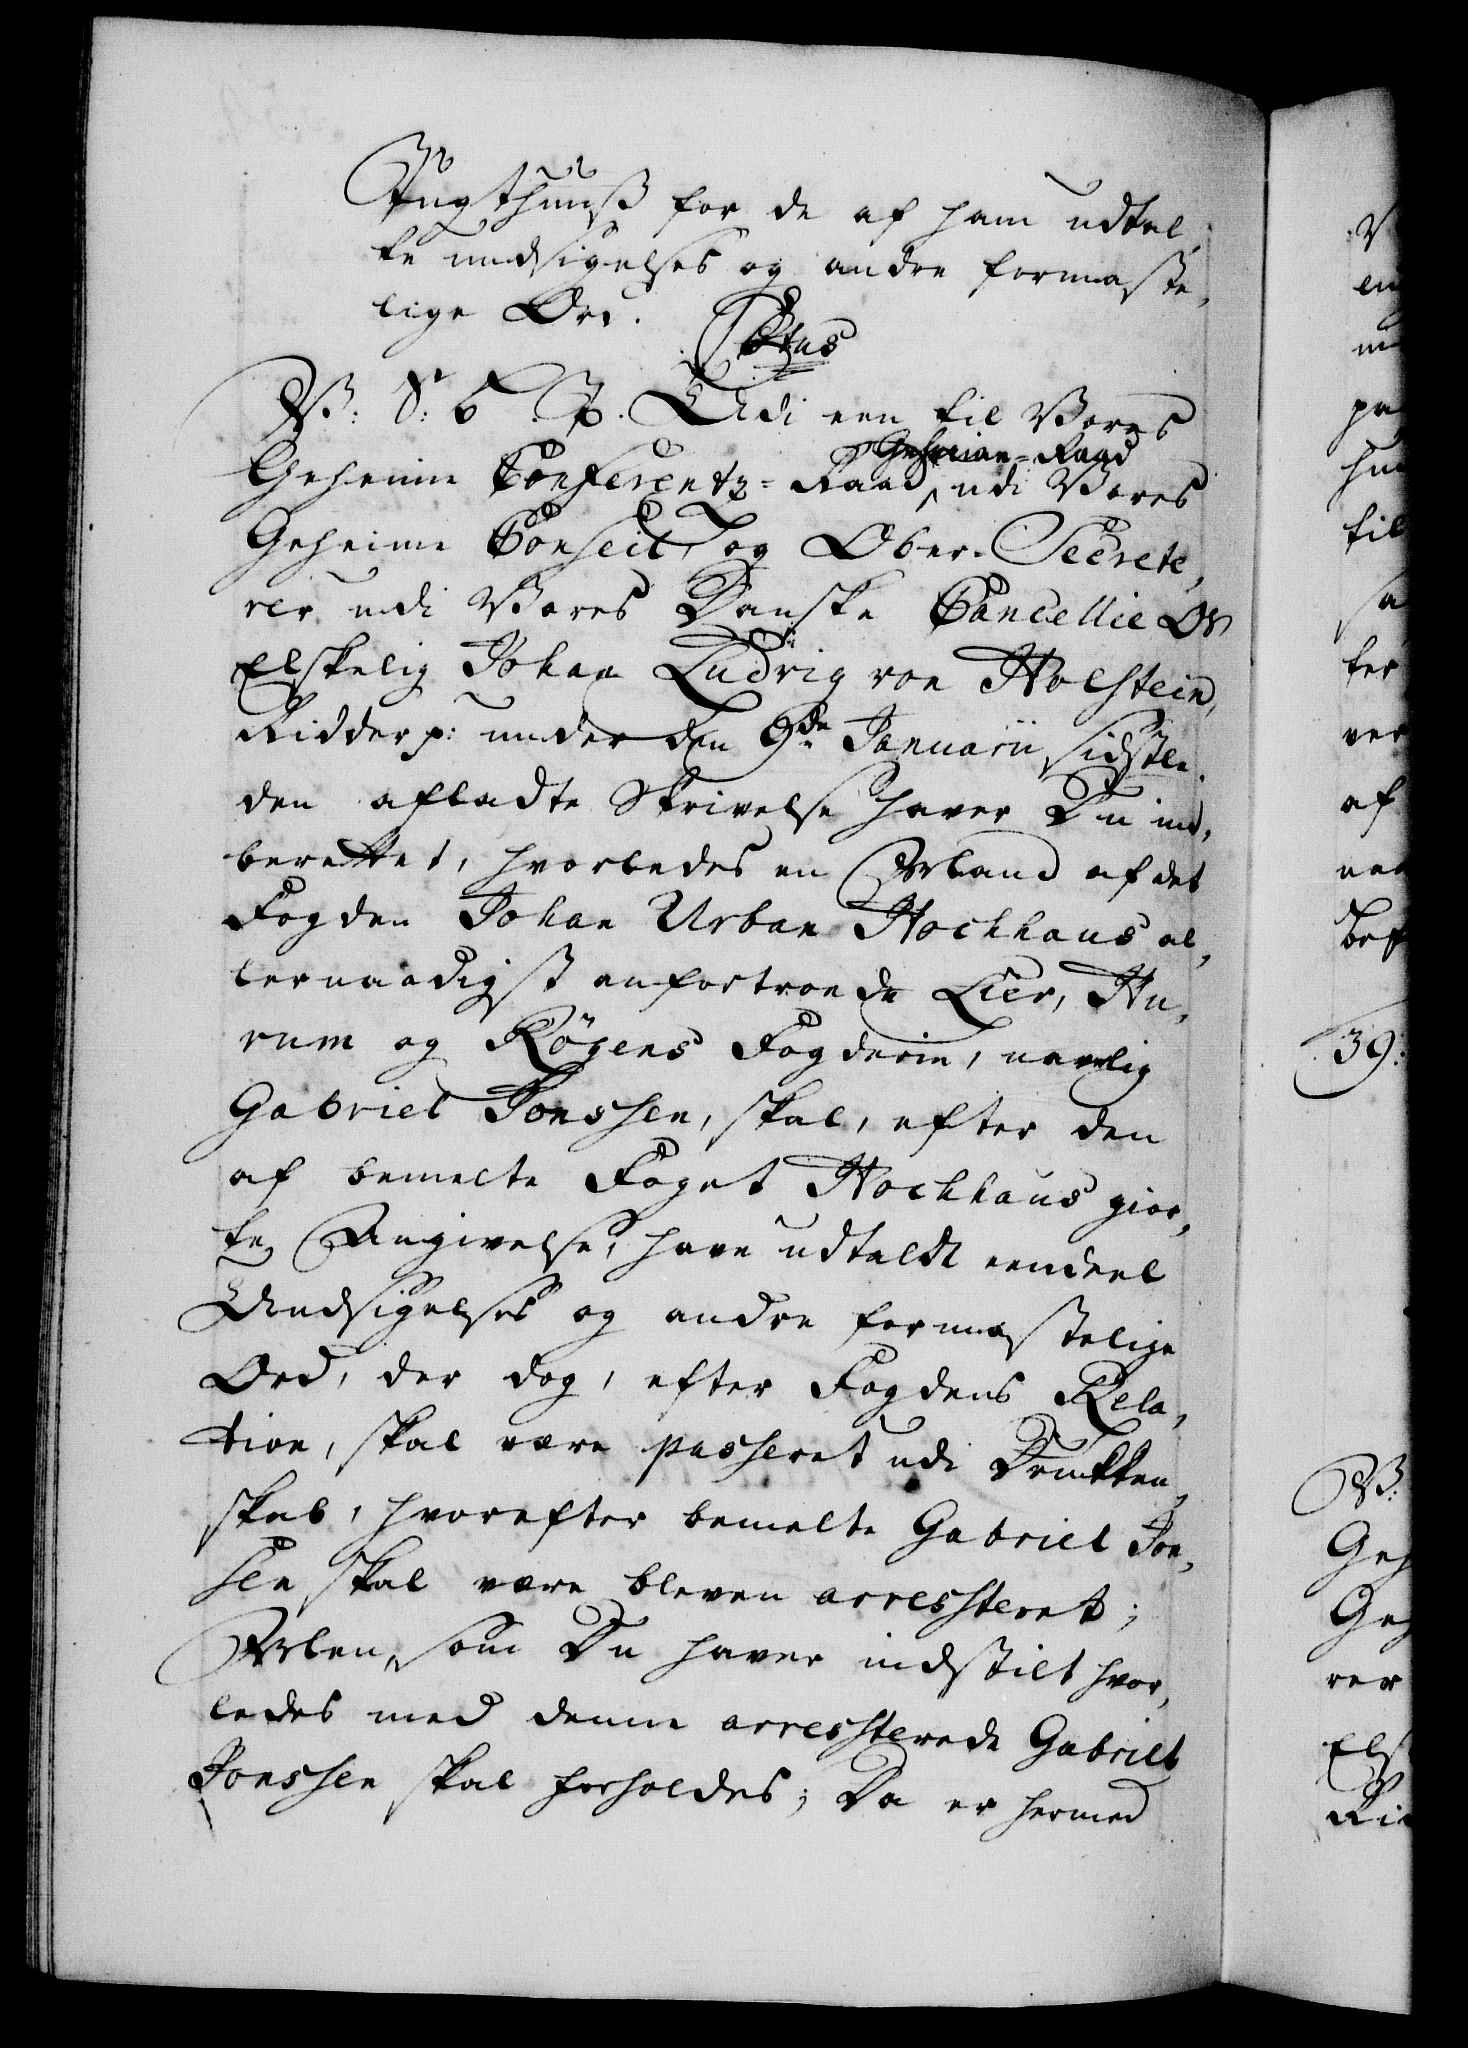 Tugthuuß for de af ham udtal,
te undsigelses og andre formaste,
lige Ord.
Chr: 6. P. Udi een til Vores
Geheime-Raad
Geheime Conferentz-Raad, udi Vores
Geheime Conseil, og Ober-Secrete,
rer udi Vores Danske Cancellie Os
Elskelig Johan Ludvig von Holstein,
Ridder p: under den 9de Januarii sidstle,
den afladte Skrivelse haver Du ind,
berettet, hvorledes en Arband af det
Fogden Johan Urban Hochhaus al,
lernaadigst anfortroede Lier, Hu,
rum og Røgens Fogderie, navnlig
Gabriel Jonssen, skal, efter den
af bemelte Foget Hochhaus gior,
te Angivelse, have udtaldt eendeel
Undsigelses og andre formastelige
Ord, der dog, efter Fogdens Rela,
tion, skal være passeret udi Drukken,
skab, hvorefter bemelte Gabriel Jon,
sen skal være bleven arressteret;
som Du haver indstilt hvor,
ledes med denne arressterede Gabriel
Jonssen skal forholdes; Da er hermed
39: